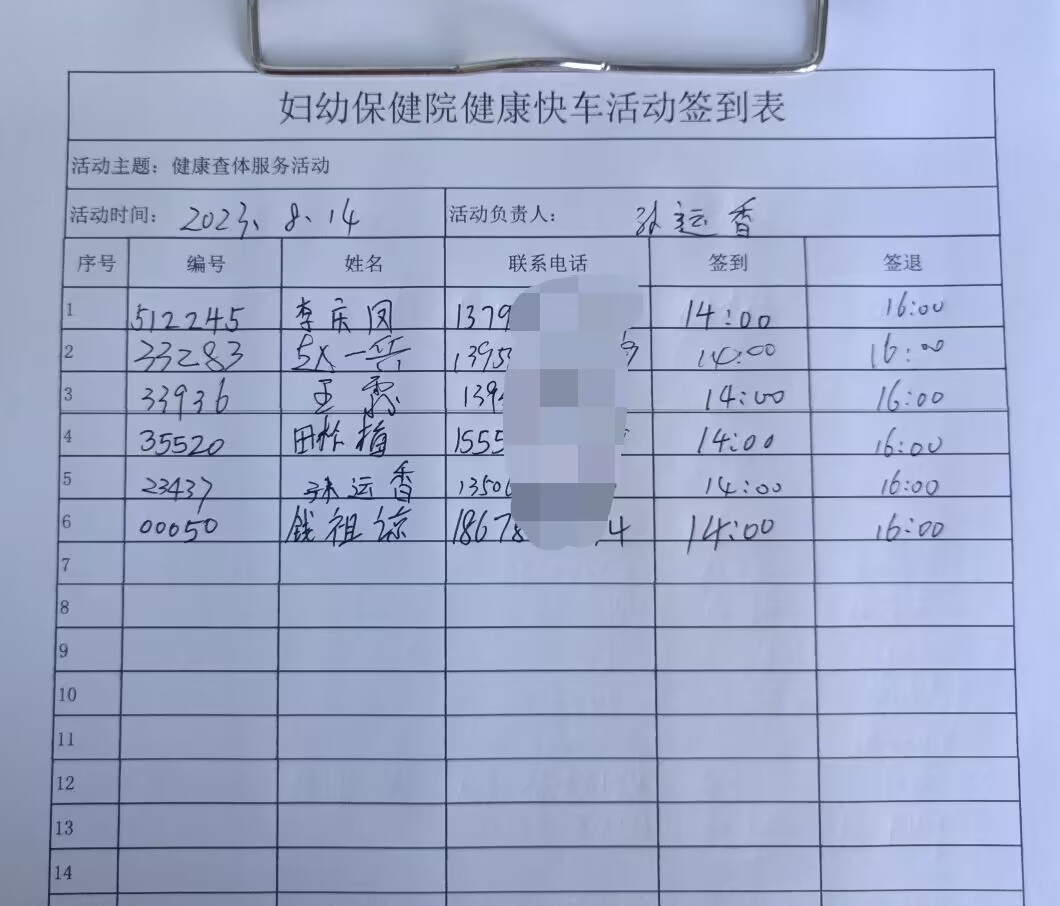 妇幼保健院健康快车活动签到表
活动主题：健康查体服务活动
活动时间：2023、8、14 活动负责人：孙运香
序号 编号 姓名 联系电话 签到 签退
1 512245 李庆凤 1379 14:00 16:00
2 33283 一兵 1395 14:00 16:00
3 33936 王霞 139 14:00 16:00
4 35520 田 梅 1555 14:00 16:00
5 23437 孙运香 1350 14:00 16:00
6 00050 钱祖 1867 4 14:00 16:00
7
8
9
10
11
12
13
14